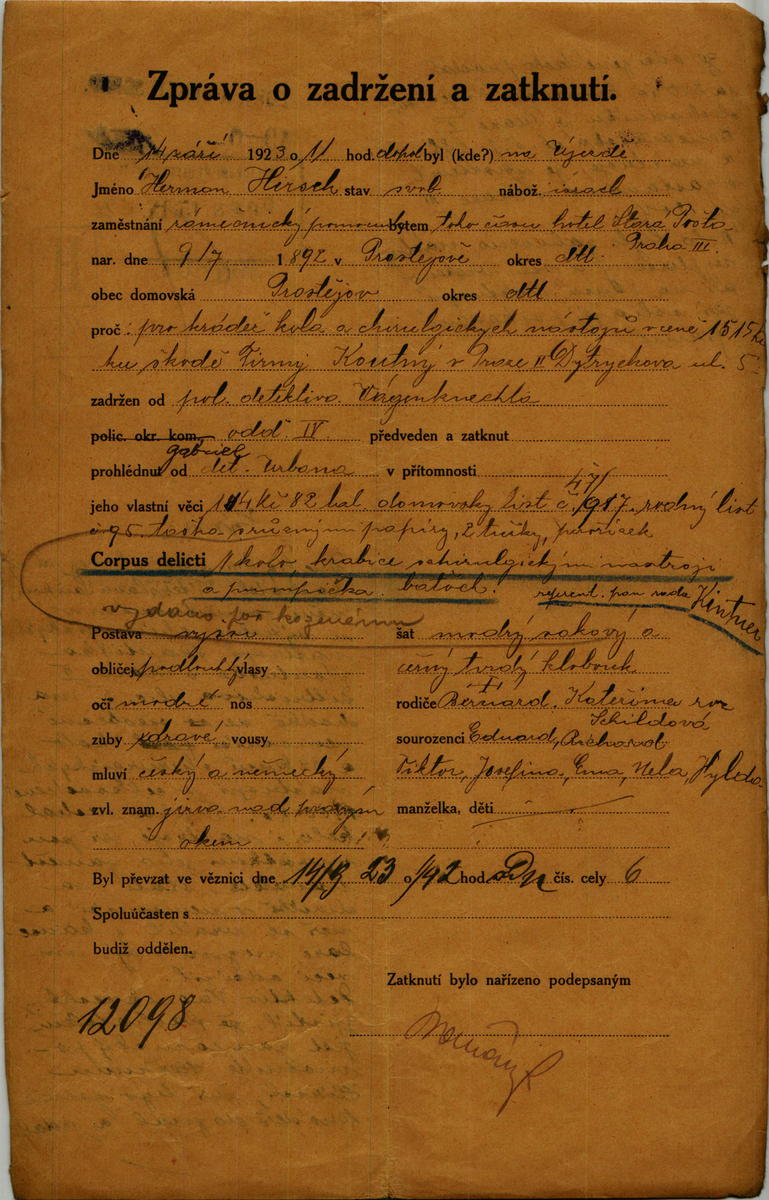 Zpráva o zadržení a zatknutí.
Dne 14 září 1923 o 11 hod. dopol byl (kde?) na Újezdě
Jméno Herman Hirsch stav svob nábož. israel
zaměstnání bytem toho času hotel Stará Pošta
Praha III
nar. dne 9/7 1892 v Prostějově okres dtt
obec domovská Prostějov okres dtt
proč: pro krádež kola a chirulgických nástrojů v ceně 1515
ku škodě firmy Koutný v Praze II Dytrychova ul. 5
zadržen od pol. detektiva Wágenknechta
polic. okr. kom. odd. IV předveden a zatknut
gabriel
prohlédnut od det. Urbana v přítomnosti
47/
jeho vlastní věci 114 kč 82 hal domovský list č. 917, rodný list
č 95, taška s různými papíry, 2 tušky,
Corpus delicti 1 kolo, krabice s chirulgickým nástroji
a pumpička batoh. referent. pan rada Kintner
vydáno
Postava vyšší šat modrý rakový a
obličej podlouhlý vlasy černý tvrdý klobouk
očí modré nos rodiče Bernard, Kateřina roz
Schildová
zuby zdravé vousy sourozenci Eduard, Richard
mluví český a německý Viktor, Josefina, Ema, Nela, Hylda
zvl. znam. jizva nad pravým manželka, děti
okem
Byl převzat ve věznici dne 14/9 23 o 1/42 hod. čís. cely 6
Spoluúčasten s
budiž oddělen.
Zatknutí bylo nařízeno podepsaným
12098